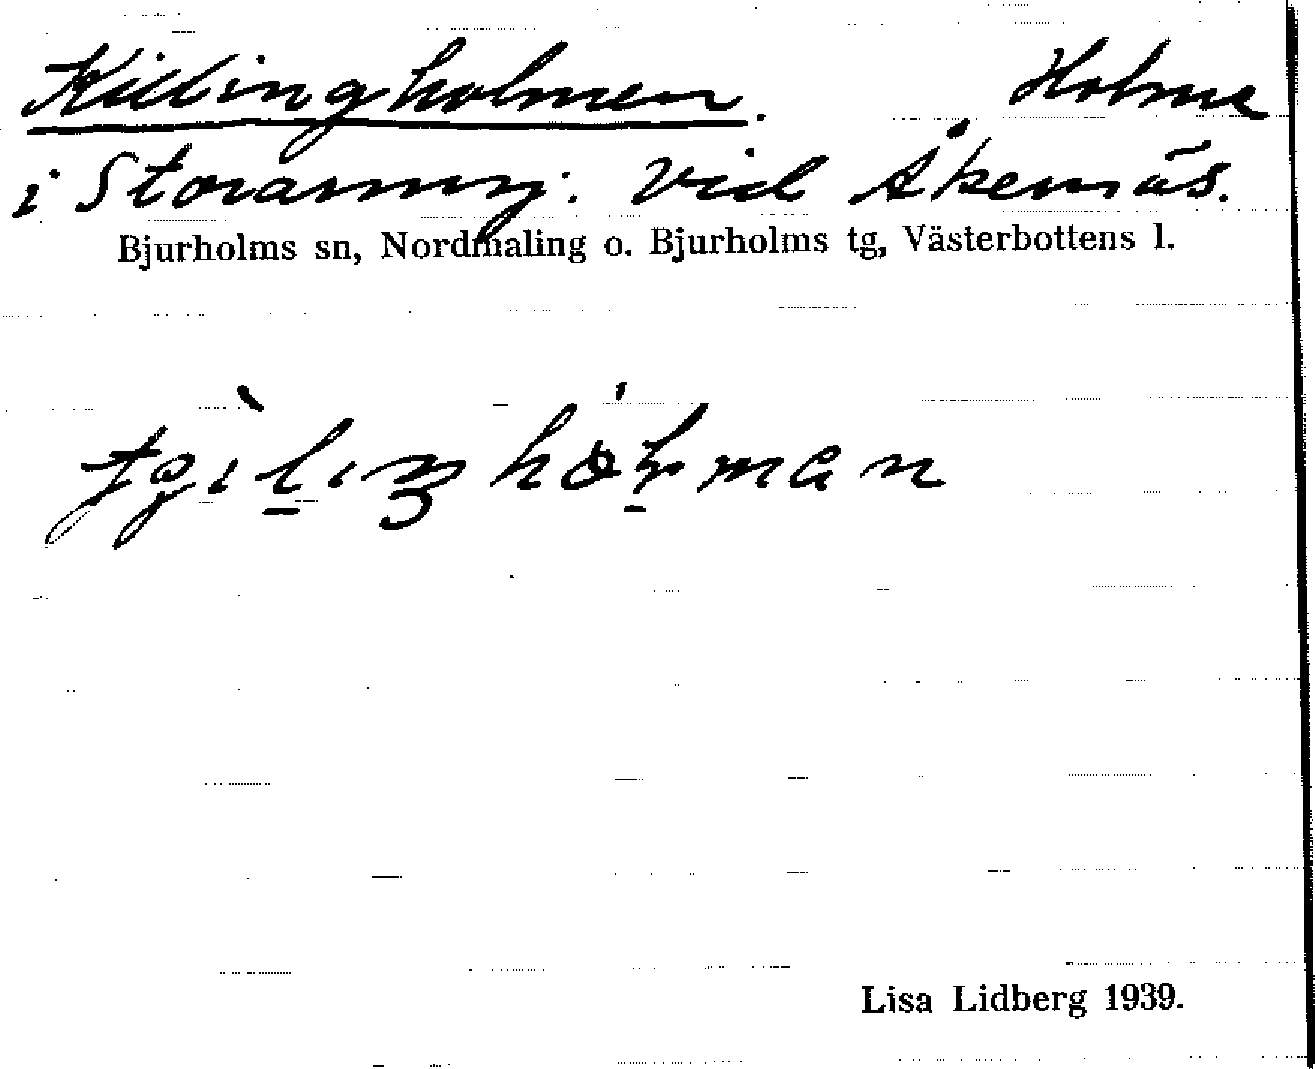 Killingholmen. Holme
i Storarmyr. vid Åkernäs.
Bjurholms sn, Nordmaling o. Bjurholms tg, Västerbottens l.
Lisa Lidberg 1939.